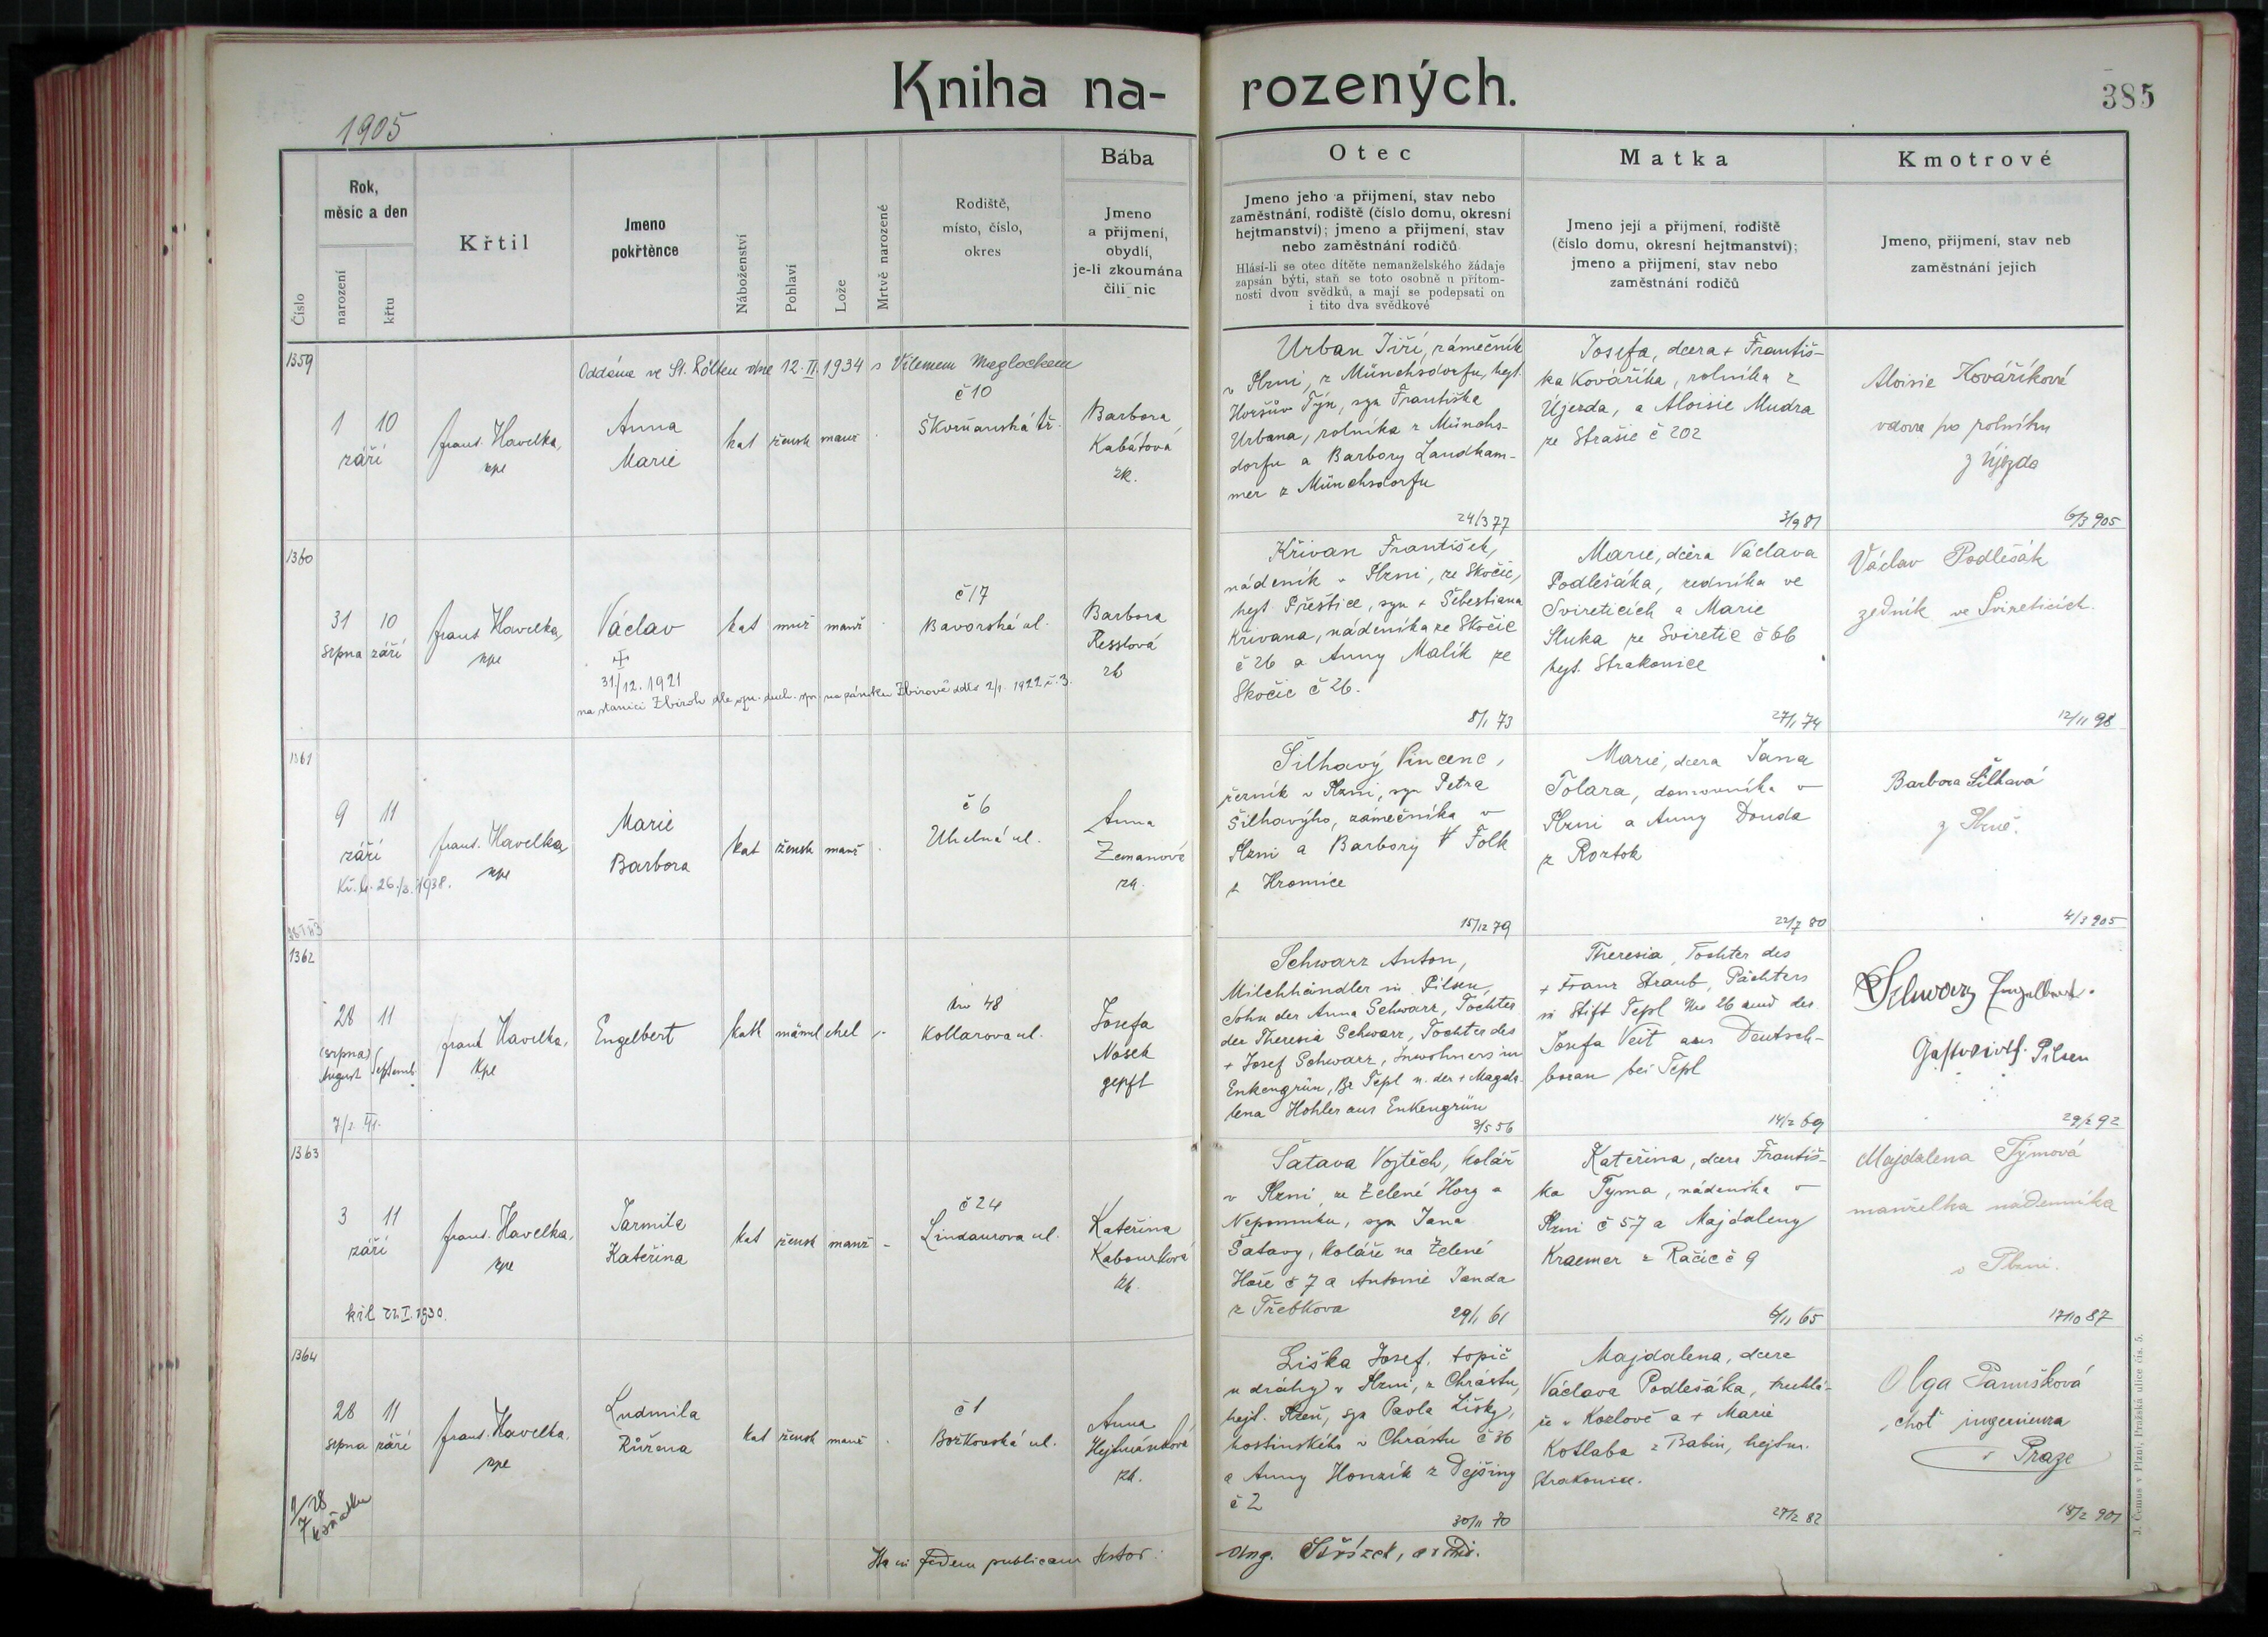 Kniha na-
rozených.
385
1905
Číslo
Rok,
měsíc a den
narození
křtu
Křtil
Jmeno
pokřtěnce
Náboženství
Pohlaví
Lože
Mrtvě narozené
Rodiště,
místo, číslo,
okres
Bába
Jmeno
a přijmení,
obydlí,
je-li zkoumána
čili nic
Otec
Jmeno jeho a přijmení, stav nebo
zaměstnání, rodiště (číslo domu, okresní
hejtmanství); jmeno a přijmení, stav
nebo zaměstnání rodičů
Hlásí-li se otec dítěte nemanželského žádaje
zapsán býti, staň se toto osobně u přítom-
nosti dvou svědků, a mají se podepsati on
i tito dva svědkové
Matka
Jmeno její a přijmení, rodiště
(číslo domu, okresní hejtmanství);
jmeno a přijmení, stav nebo
zaměstnání rodičů
Kmotrové
Jmeno, přijmení, stav neb
zaměstnání jejich
1359
Oddána ve St. Pölten dne 12. II. 1934 s Vilemem Meglockem
1 10
září
frant. Havelka,
kpe
Anna
Marie
kat žensk manž
č 10
Škvrňanská tř.
Barbora
Kabátová
zk.
Urban Jiří, zámečník
v Plzni, z Münchsdorfu, hejt.
Horšův Týn, syn Františka
Urbana, rolníka z Münchs-
dorfu a Barbory Landkam-
mer z Münchsdorfu
24/3 77
Josefa, dcera + Františ-
ka Kováříka, rolníka z
Újezda, a Aloisie Mudra
ze Strašic č 202
3/9 81
Aloisie Kováříková
vdova po rolníku
z Újezda
6/3 905
1360
31 10
srpna září
frant. Havelka,
kpe
Václav
31/12. 1921
na stanici Zbiroh dle duch. spr. na zámku Zbirově ddto 2/1. 1922 č. 3.
kat muž manž
č 17
Bavorská ul.
Barbora
Resslová
zk
Křivan František,
nádeník v Plzni, ze Skočic,
hejt. Přeštice, syn + Šebestiana
Křivana, nádeníka ze Skočic
č 26 a Anny Malík ze
Skočic č 26.
8/1 73
Marie, dcera Václava
Podlešáka, zedníka ve
Svireticích a Marie
Sluka ze Sviretic č 66
hejt. Strakonice
27/1 74
Václav Podlešák
zedník ve Svireticích.
12/11 98
1361
9 11
září
Kř. l. 26./3. 1938.
frant. Havelka,
kpe
Marie
Barbora
kat žensk manž
č 6
Uhelná ul.
Anna
Zemanová
zk.
Šilhavý Vincenc,
řezník v Plzni, syn Petra
Šilhavýho, zámečníka v
Plzni a Barbory Folk
z Hromice
15/12 79
Marie, dcera Jana
Tolara, domovníka v
Plzni a Anny Douda
z Roztok
22/7 80
Barbora Šilhavá
z Plzně.
4/3 905
1362
28 11
(srpna)
August Septemb.
frant. Havelka,
kpe
Engelbert
kath männl ehel
Nro 48
Kollarova ul.
Josefa
Nosek
gepft
Schwarz Anton,
Milchhändler in Pilsen,
Sohn der Anna Schwarz, Tochter
der Theresia Schwarz, Tochter des
+ Josef Schwarz, Inwohners in
Enkengrün, Bz Tepl u. der + Magda-
lena Hohler aus Enkengrün
3/5 56
Theresia, Tochter des
+ Franz Straub, Pächters
in Stift Tepl Nro 26 und der
Josefa Veit aus Deutsch-
boran bei Tepl
14/2 69
Schwarz Engelbert.
Gastwirth. Pilsen
29/2 92
1363
3 11
září
frant. Havelka,
kpe
Jarmila
Kateřina
kat žensk manž -
č 24
Lindaurova ul.
Kateřina
Kabourková
zk.
Šatava Vojtěch, kolář
v Plzni ze Zelené Hory a
Nepomuku, syn Jana
Šatavy, koláře na Zelené
Hoře č 7 a Antonie Janda
z Třebkova
29/1 61
Kateřina, dcera Františ-
ka Tyma, nádeníka v
Plzni č 57 a Majdaleny
Kraemer z Račic č 9
6/11 65
Majdalena Týmová
manželka nádenníka
v Plzni.
17/10 87
1364
28 11
srpna září
frant. Havelka.
kpe
Ludmila
Růžena
kat žensk manž
č 1
Božkovská ul.
Anna
Hejtmánková
zk.
Liška Josef, topič
u dráhy v Plzni, z Chrástu,
hejt. Plzeň, syn Pavla Lišky,
hostinského v Chrástu č 36
a Anny Honzík z Dejšiny
č 2
30/11 70
Majdalena, dcera
Václava Podlešáka, truhlá-
ře v Kozlově a + Marie
Kotlaba z Babin, hejtm.
Strakonice.
27/2 82
Olga Panušková
choť ingenieura
v Praze
18/2 901
fidem publicam testor:
J. Čemus v Plzni, Pražská ulice čís. 5.